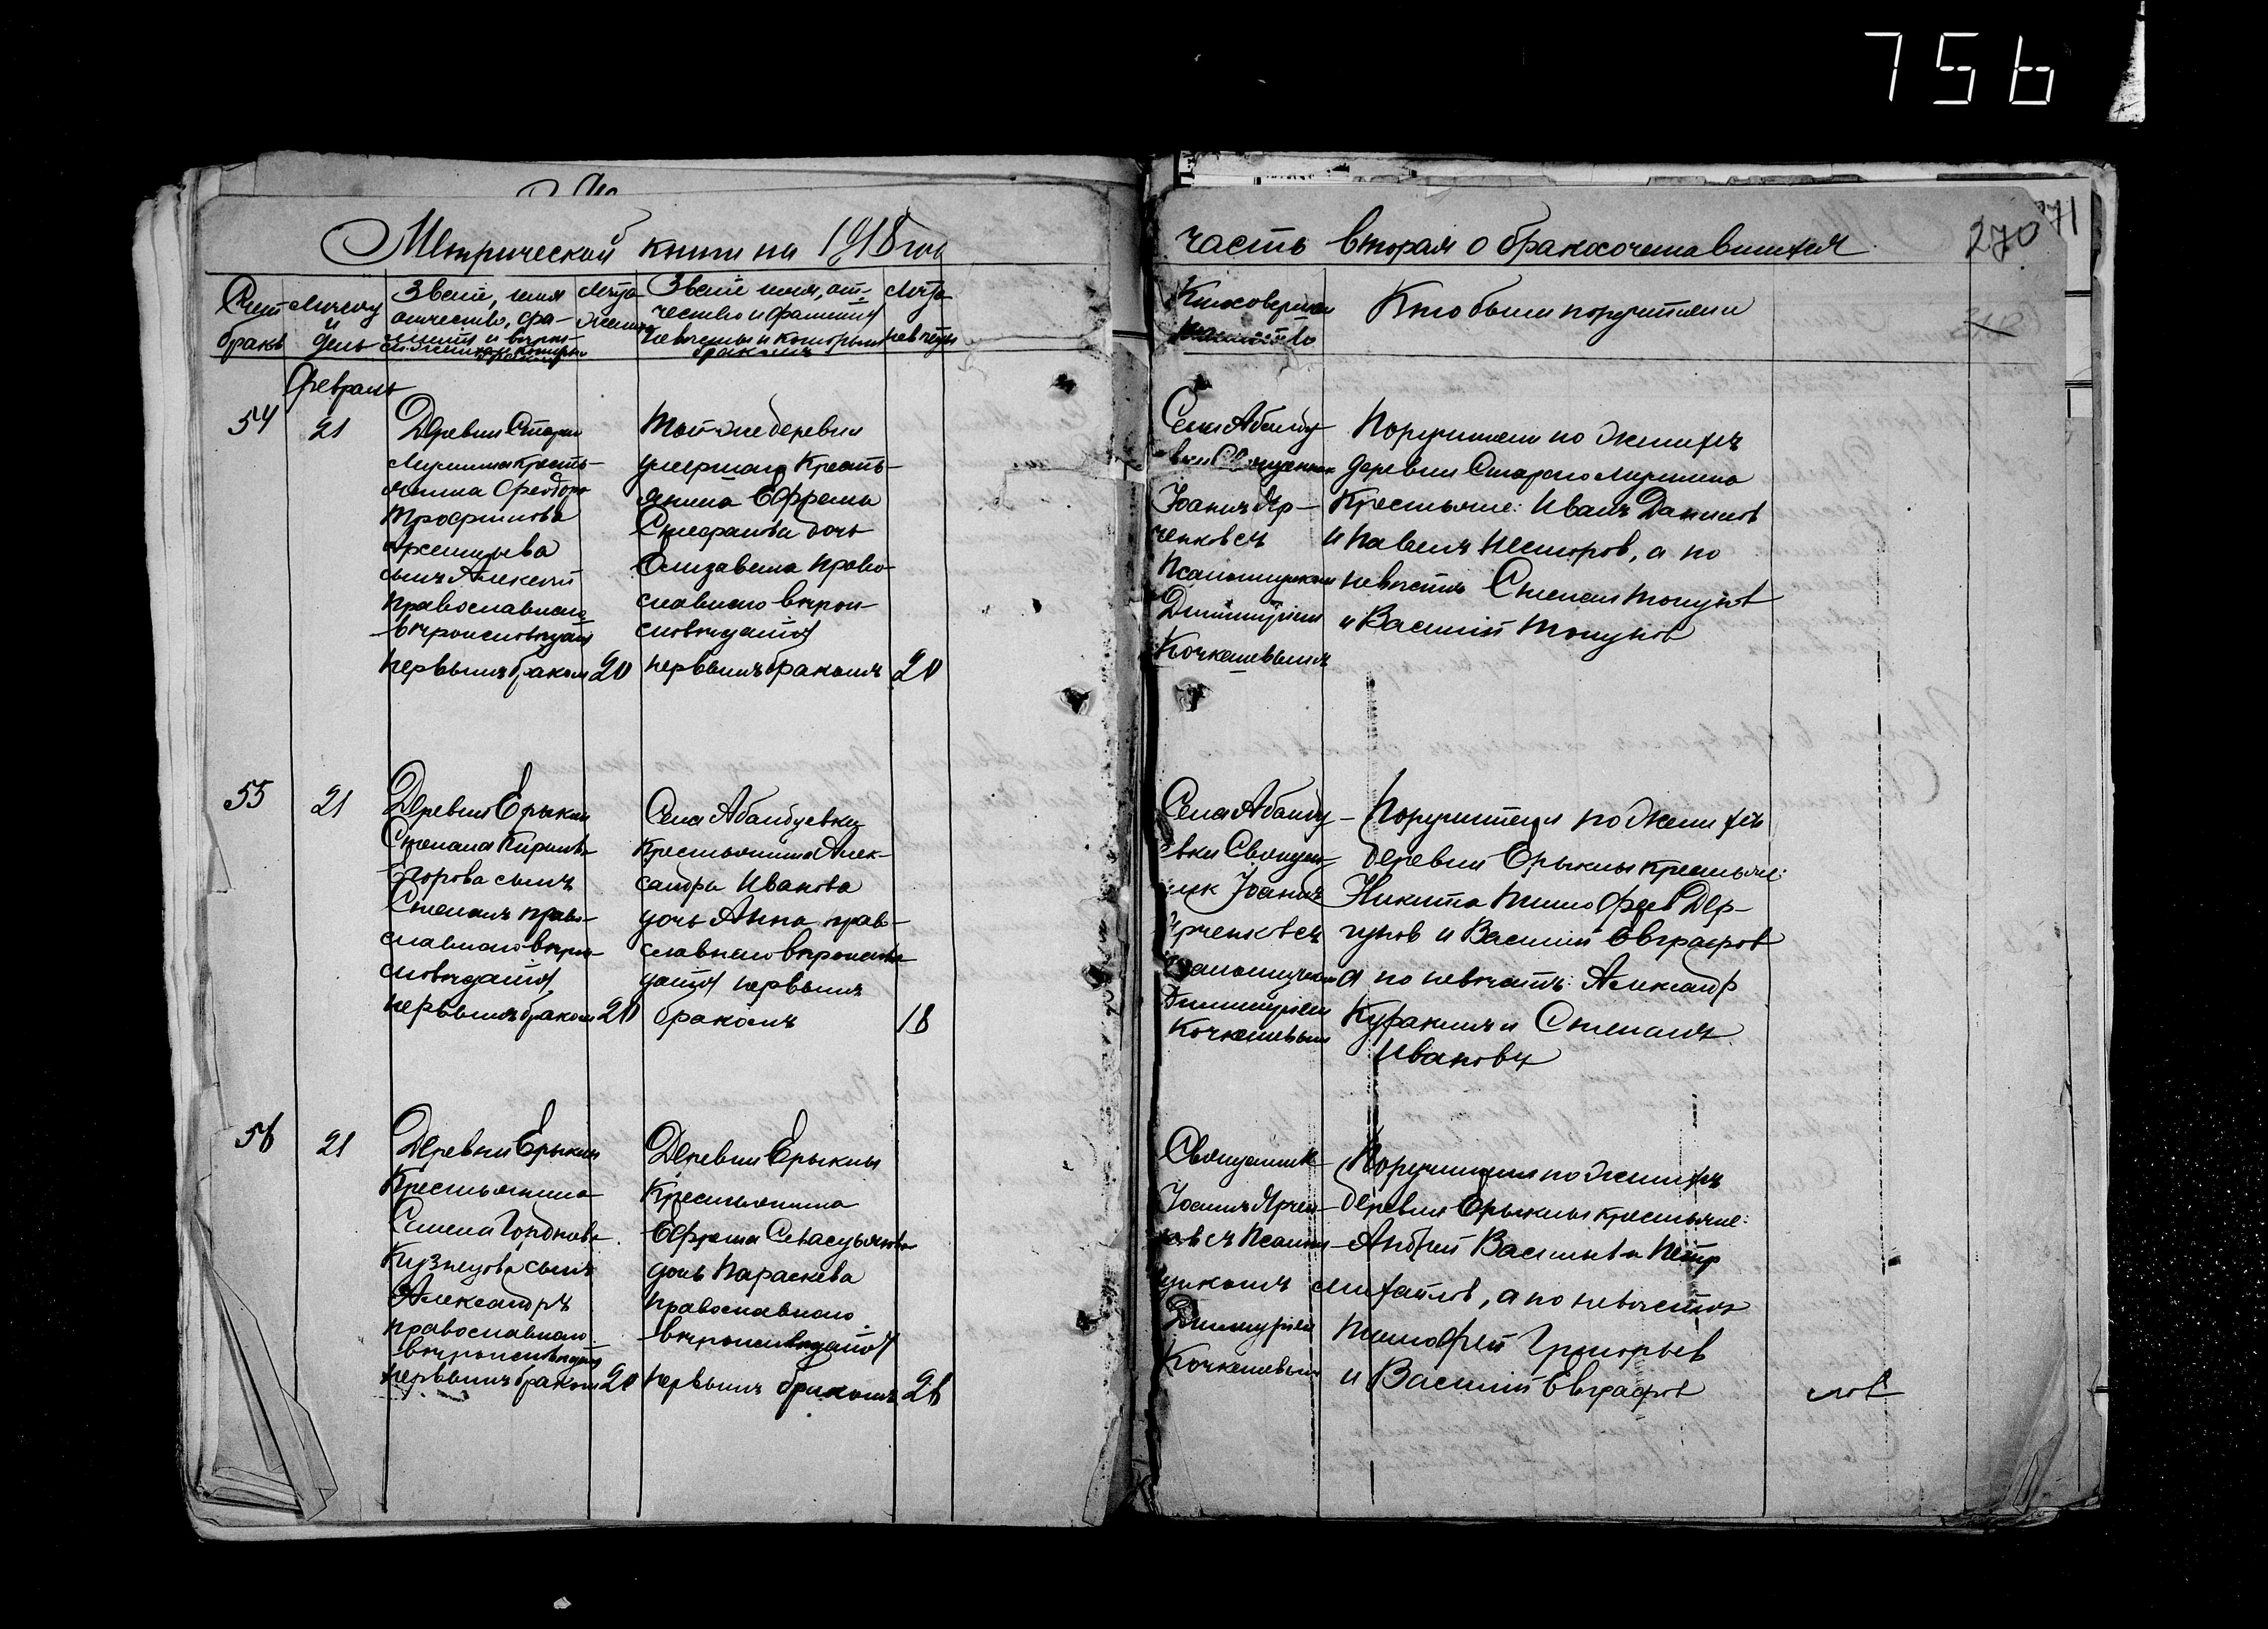 756
Метрической книги на 1918 год
часть вторая о бракосочетавшихся
270
271
Счет браков
Месяц и день
Звание, имя
отчество, фа-
Лета
жениха
Звание имя, от-
чество и фамилия
невесты и которым
браком
Лета
невесты
Кто совершал
таинство
Кто были поручители
Февраль
54
21
Деревни Старого
Мертина кресть-
янина Феодора
Трофимова
сынъ Алексей
православного
вероисповедания
первымъ браком
20
Той-же деревни
умершаго Кресть-
янина Ефрема
Стефанова дочь
Елизавета право-
славного верои-
споведания
первымъ бракомъ
20
Села Абайду-
евки Священник
Иоаннъ Яр-
ченковсъ
Псаломщиком
Димитрием
Кочкаševымъ
Поручители по женихе
деревни Старого Мертина
Крестьяне: Иван Данилов
и Павелъ Несторов, а по
невесте Степан
и Василий
55
21
Деревни Ерыклы
Степана Кирилова
Егорова сынъ
Степанъ право-
славного верои-
споведания
первымъ браком
20
Села Абайдуевки
Крестьянина Алек-
сандра Иванова
дочь Анна право-
славного вероиспове-
дания первымъ
бракомъ
18
Села Абайду-
евки Священ-
ник Иоаннъ
Псаломщиком
Димитрием
Поручители по женихе
деревни Ерыклы крестьяне:
Никита Тимофеев Дер-
гунов и Василий Евграфов
а по невесте: Александр
Куракинъ и Степанъ
Ивановъ
56
21
Деревни Ерыклы
Крестьянина
Семена
Кузнецова сынъ
Александръ
православного
вероисповедания
первымъ браком
20
Деревни Ерыклы
Крестьянина
Ефрема Севастьянова
дочь Параскева
православного
вероисповедания
первымъ бракомъ
Священник
Иоаннъ
Псалом-
щикомъ
Димитрием
Поручители по женихе
деревни Ерыклы крестьяне:
Андрей Васильев и Петр
Михайлов, а по невесте
Тимофей Григорьев
и Василий Евграфов